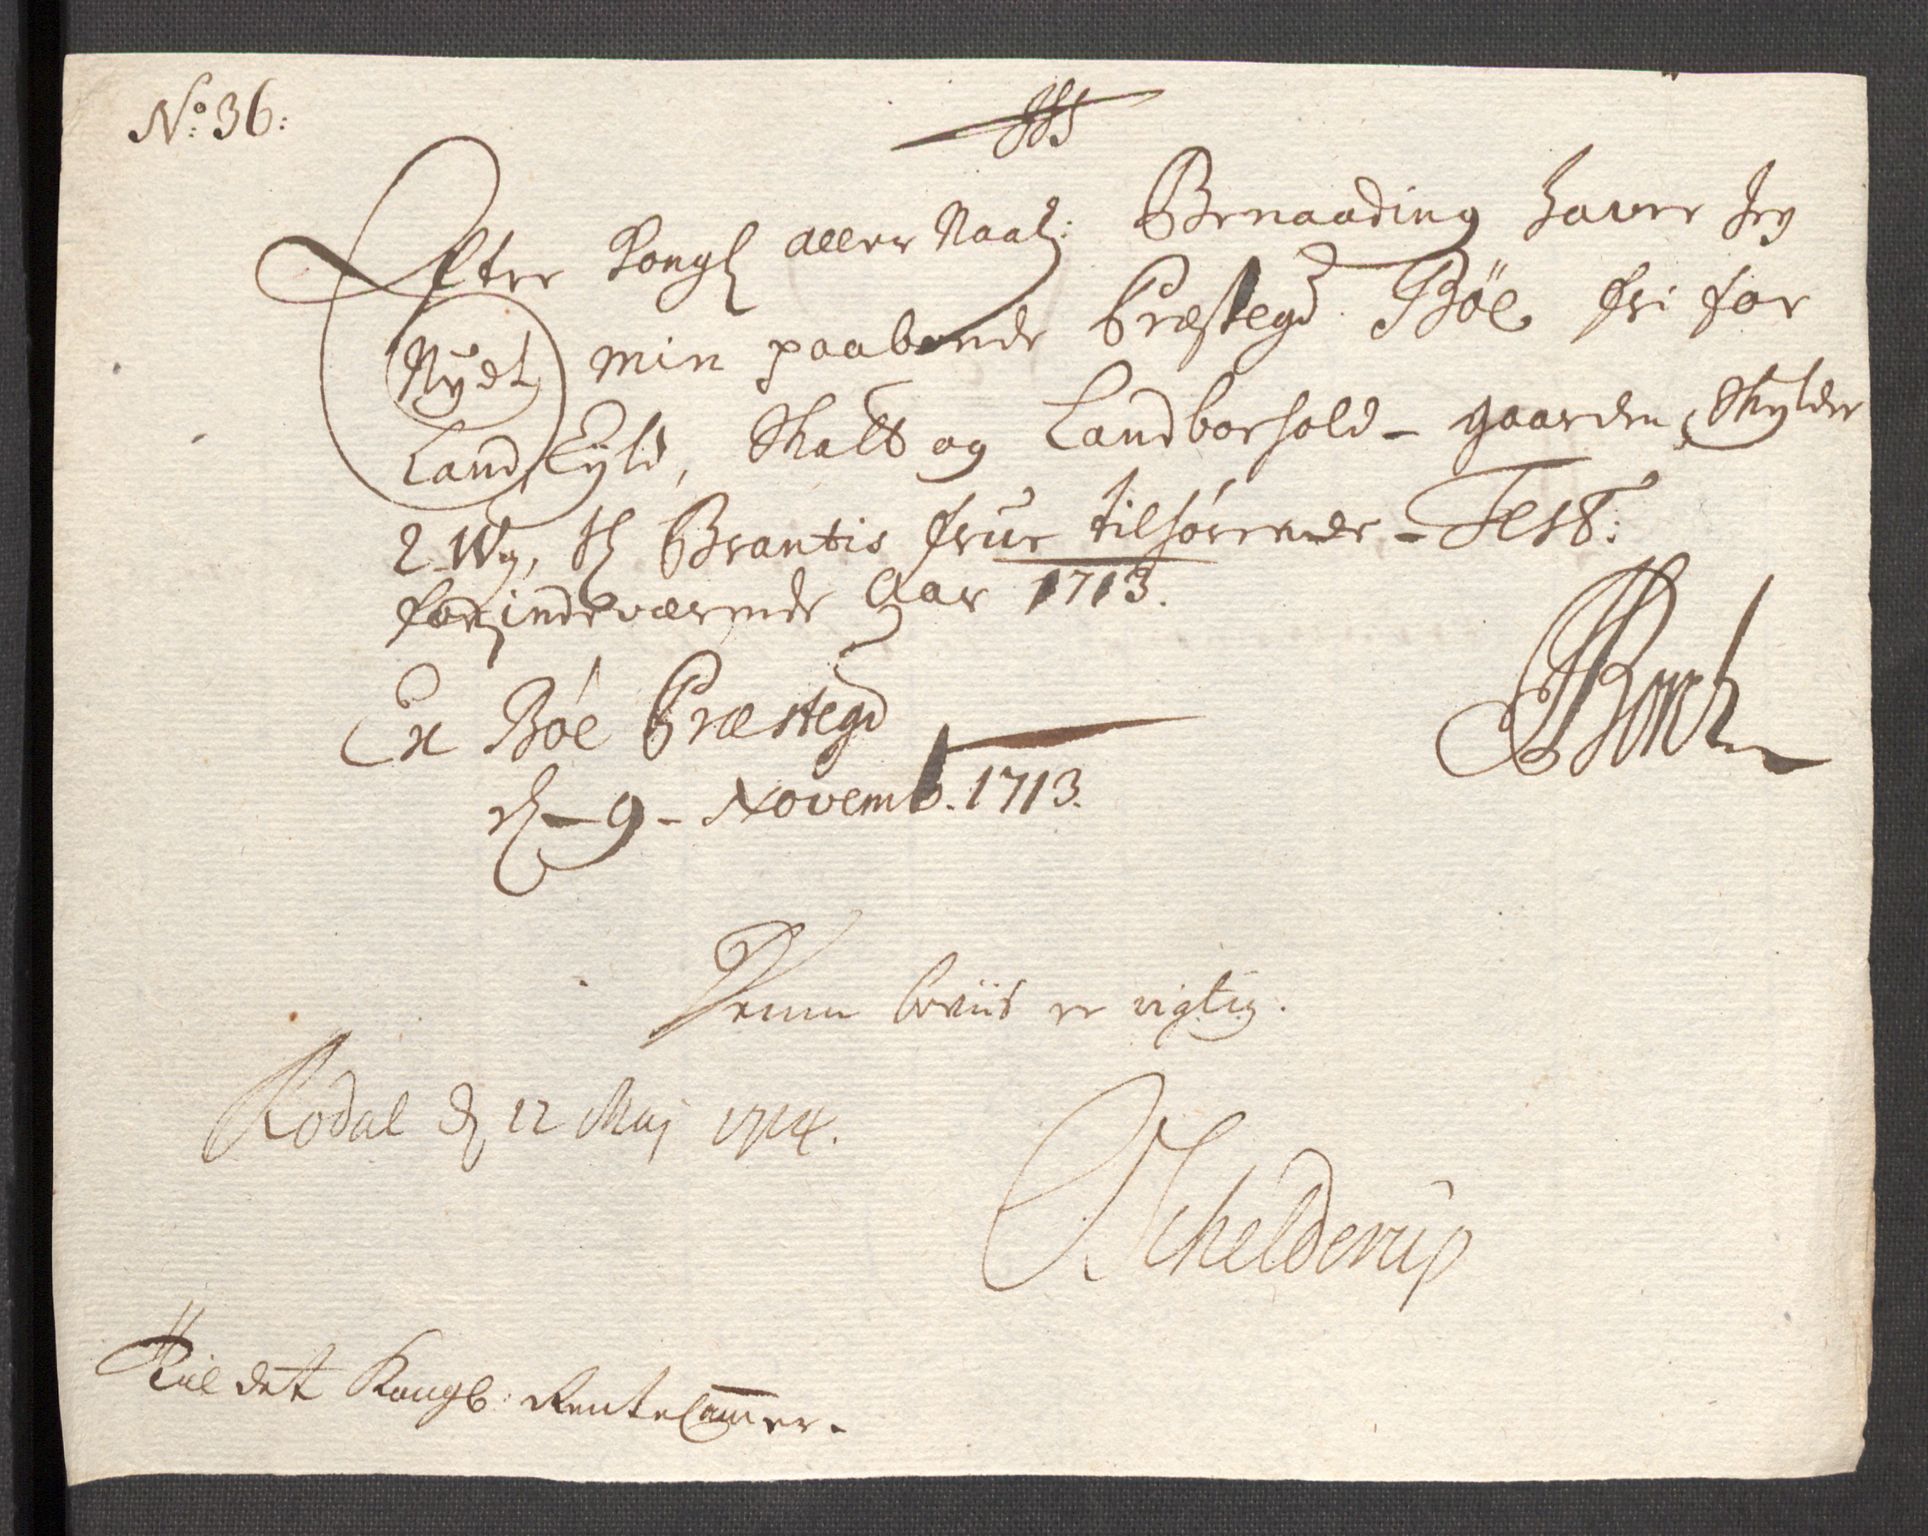 No: 36:
JHS
Efter Kongl aller Naad: Benaading haver Jeg
Nydt min paaboende Præstegd Bøe fri for
Landskyld, Skatt og Landboehold - gaarden Skylder
2 Wg, Hr Brantis frue tilhørende - Test:
for indeværende Aar 1713.
Ex Bøe Præstegd
d - 9 - Novemb. 1713.
Denne beviis er rigtig.
Rodal d 12 Maj 1714.
Schelderup
Til det Kongl: Rente Camer.